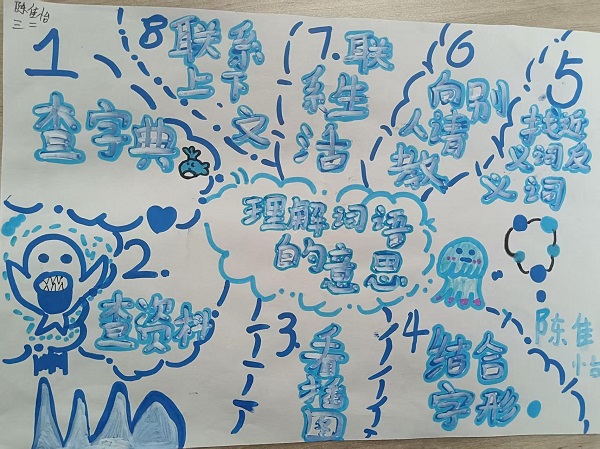 陈佳怡
三二
1
查字典
8
联系
上下
文
7.
联
系生
活
6
向别
人请
教
5
找近
义词反
义词
理解词语
的意思
2.
查资料
3.
看插图
4
结合
字形
陈佳
怡